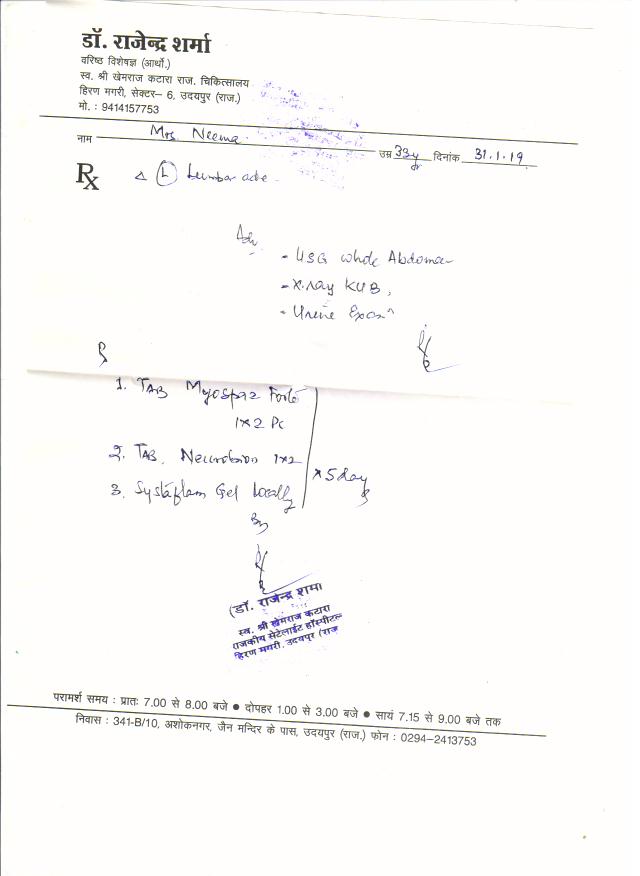 डॉ. राजेन्द्र शर्मा
वरिष्ठ विशेषज्ञ (आर्थो.)
स्व. श्री खेमराज कटारा राज. चिकित्सालय
हिरण मगरी, सेक्टर– 6, उदयपुर (राज.)
मो. : 9414157753
नाम Mrs Neema उम्र 33y दिनांक 31.1.19
Rx Δ (L) Lumbar ache
Adv
- USG whole Abdomen
- X.ray KUB,
- Urine Exam
1. TAB Myospaz Forte
1x2 PC
2. TAB. Neurobion 1x2
x 5 day
3. Systaflam Gel Locally
(डॉ. राजेन्द्र शर्मा
स्व. श्री खेमराज कटारा
राजकीय सेटेलाईट हॉस्पीटल
हिरण मगरी, उदयपुर (राज
परामर्श समय : प्रातः 7.00 से 8.00 बजे ● दोपहर 1.00 से 3.00 बजे ● सायं 7.15 से 9.00 बजे तक
निवास : 341-B/10, अशोकनगर, जैन मन्दिर के पास, उदयपुर (राज.) फोन : 0294-2413753